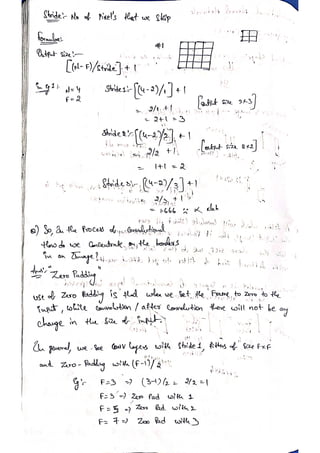 Stride:- No of Pixel's that we skip
Formulae:-
#1
Output size:-
[(N-F)/stride] + 1
In eg 1:- N=4 Stride 1:- [(4-2)/1] + 1
F=2
2/1 + 1 [output size 3×3]
= 2+1 = 3
Stride 2:- [(4-2)/2] + 1
= 2/2 + 1 [output size 2×2]
= 1+1 = 2
Stride 3:- [(4-2)/3] + 1
2/3 + 1
Q) So, In the Process of Convolutional
How do we Concentrate on the borders
in an Image?
Ans:- "Zero Padding"
use of Zero Padding is that when we set the Frame to zero to the
input, while convolution / after convolution there will not be any
change in the size of input.
In general, we see conv layers with stride 1, filters of size F×F
and zero-Padding with (F-1)/2
Eg:- F=3 => (3-1)/2 = 2/2 = 1
F=3 => Zero Pad with 1
F=5 => Zero Pad with 2
F=7 => Zero Pad with 3